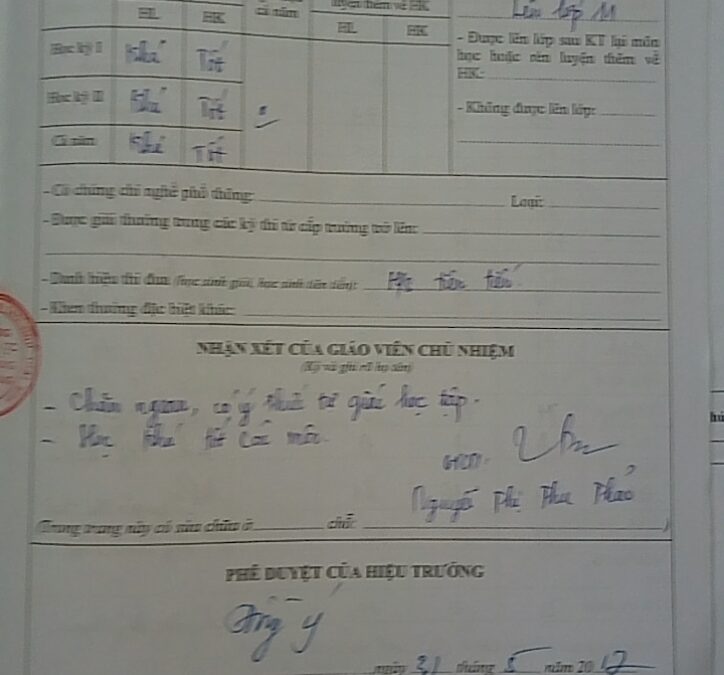 HL HK cả năm luyện thêm về HK Lên lớp 11
HL HK
- Được lên lớp sau KT lại môn
Học kỳ I Khá Tốt
học hoặc rèn luyện thêm về
HK:
Học kỳ II Khá Tốt
- Không được lên lớp:
Cả năm Khá Tốt
- Có chứng chỉ nghề phổ thông: Loại:
- Được giải thưởng trong các kỳ thi từ cấp trường trở lên:
- Danh hiệu thi đua (học sinh giỏi, học sinh tiên tiến): tiên tiến
- Khen thưởng đặc biệt khác:
NHẬN XÉT CỦA GIÁO VIÊN CHỦ NHIỆM
(Ký và ghi rõ họ tên)
- Chăm ngoan, có ý thức tự giác học tập.
- Học khá tốt các môn.
GVCN.
Nguyễn Thị Thu Thảo
(Trong trang này có sửa chữa ở chỗ: )
PHÊ DUYỆT CỦA HIỆU TRƯỞNG
Đồng ý
ngày 31 tháng 5 năm 2017